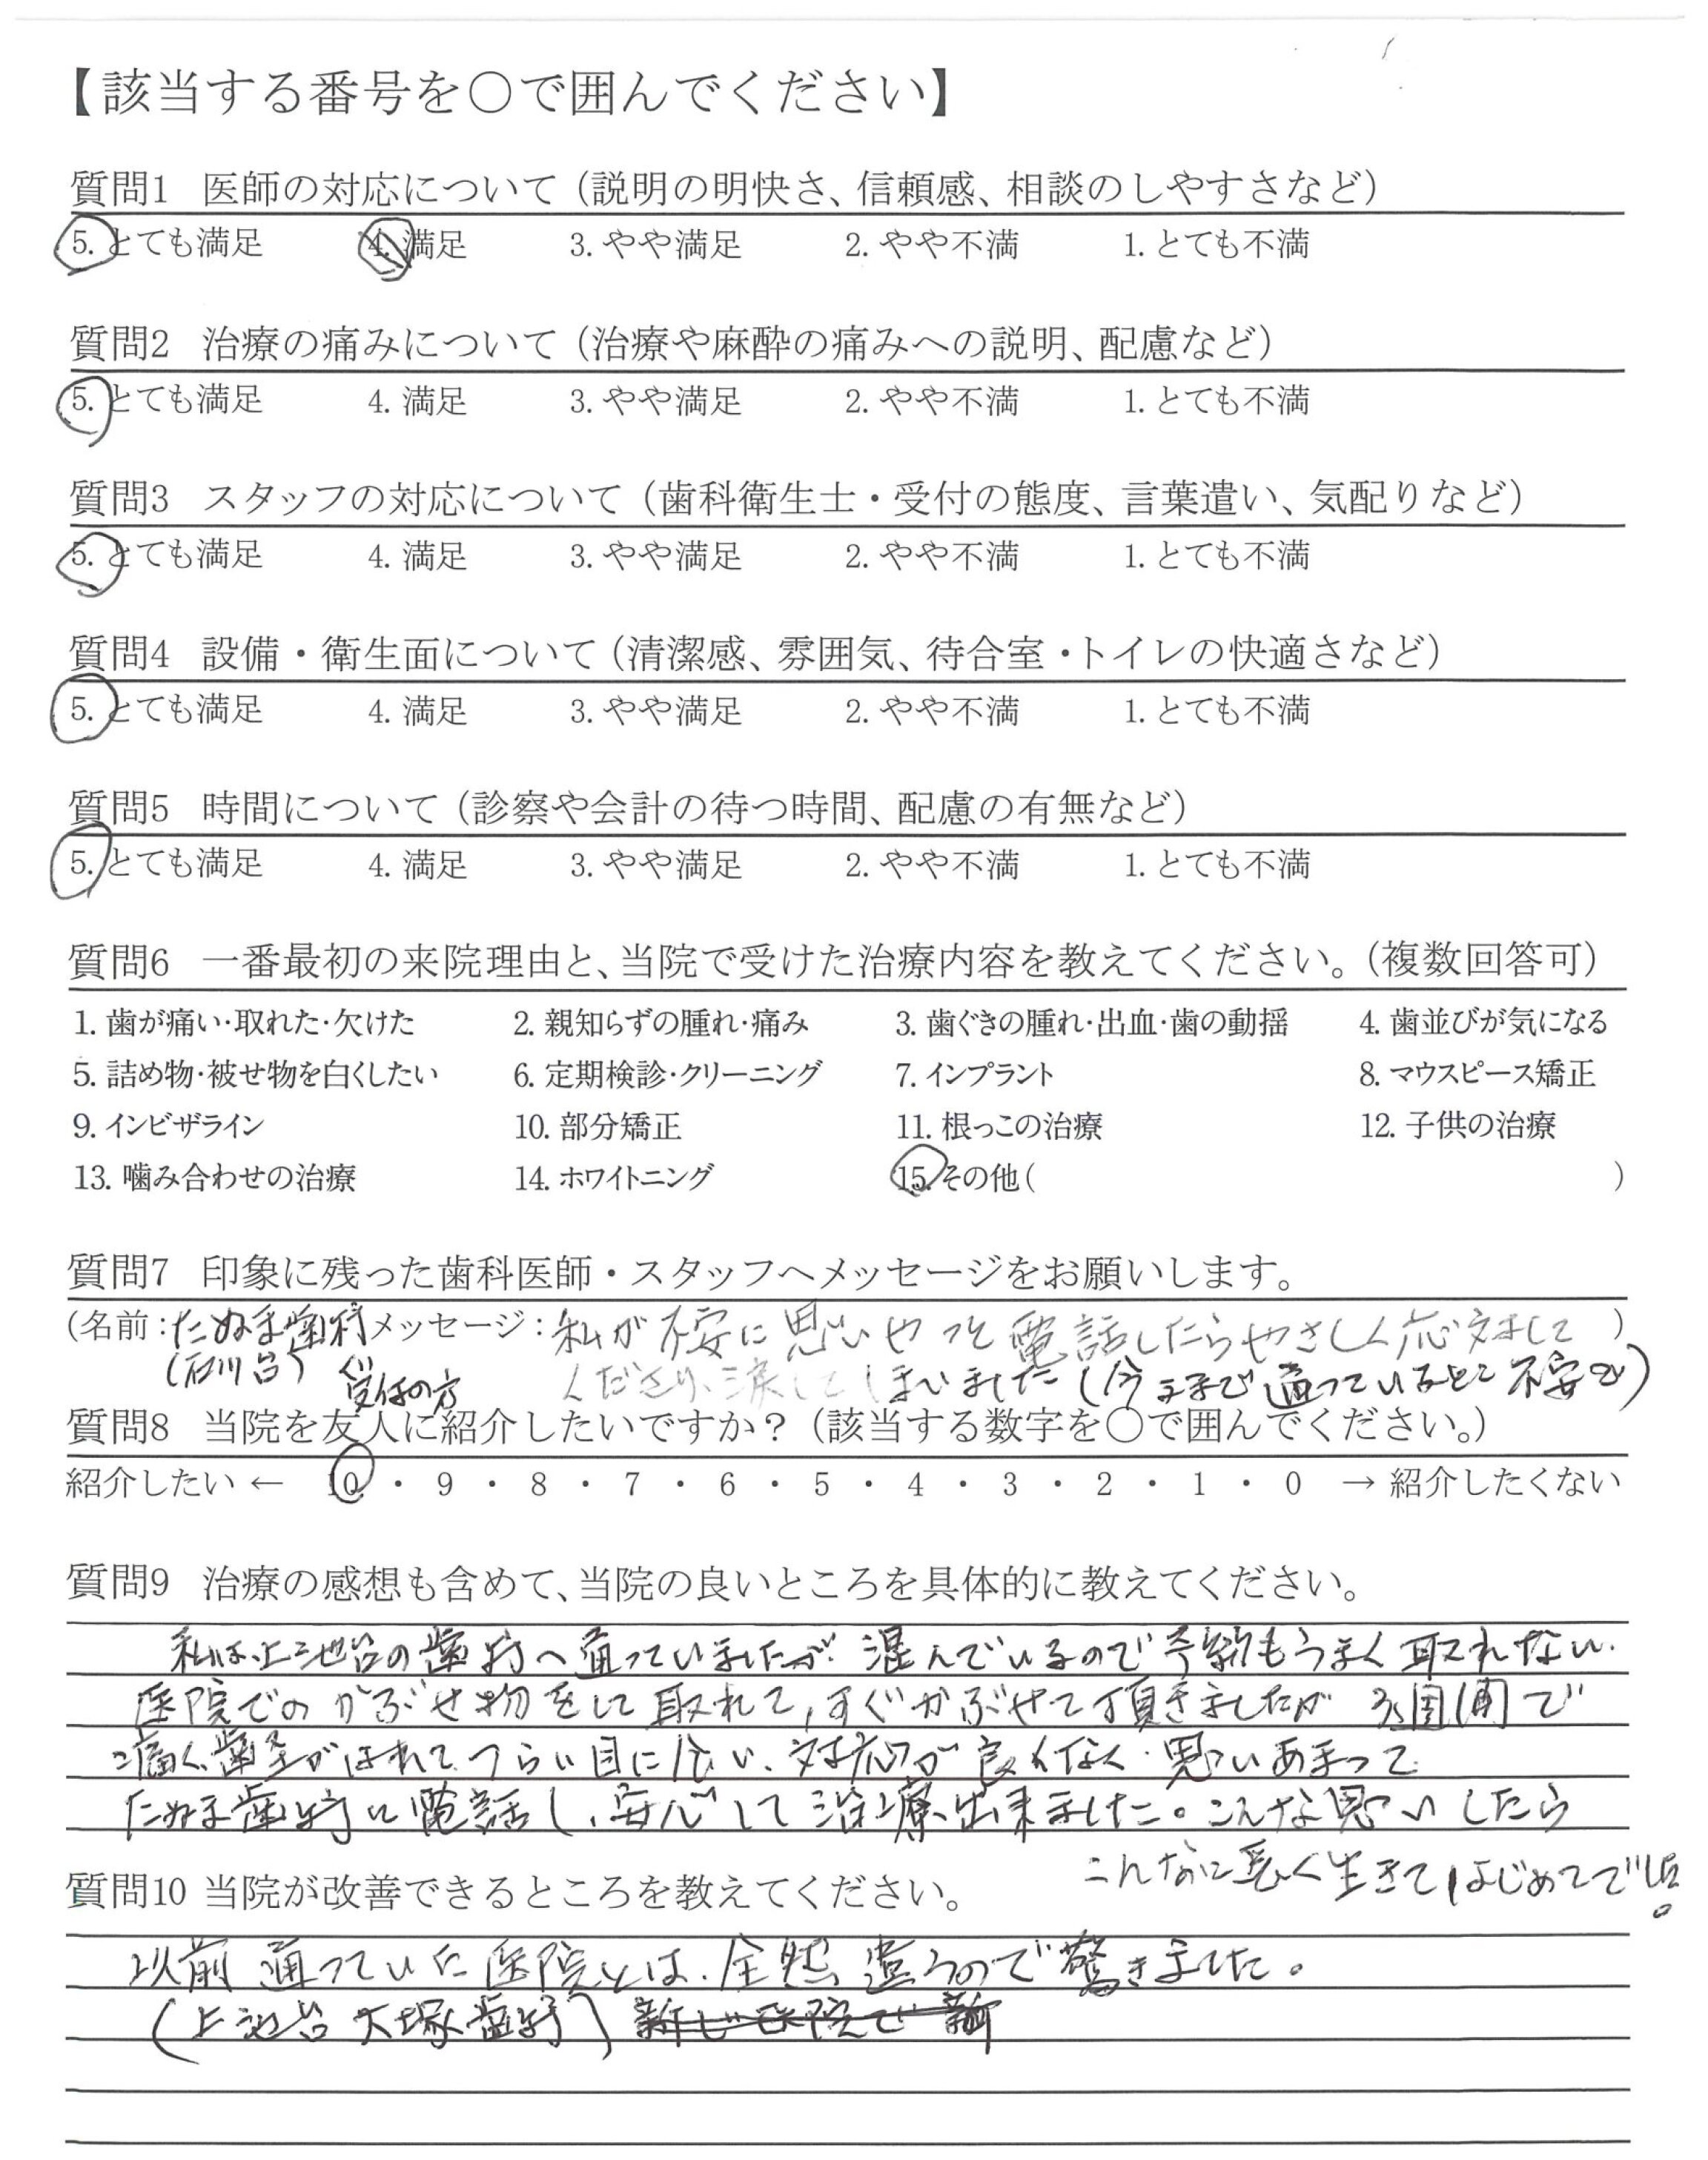 【該当する番号を〇で囲んでください】
質問1 医師の対応について（説明の明快さ、信頼感、相談のしやすさなど）
5. とても満足 4. 満足 3. やや満足 2. やや不満 1. とても不満
質問2 治療の痛みについて（治療や麻酔の痛みへの説明、配慮など）
5. とても満足 4. 満足 3. やや満足 2. やや不満 1. とても不満
質問3 スタッフの対応について（歯科衛生士・受付の態度、言葉遣い、気配りなど）
5. とても満足 4. 満足 3. やや満足 2. やや不満 1. とても不満
質問4 設備・衛生面について（清潔感、雰囲気、待合室・トイレの快適さなど）
5. とても満足 4. 満足 3. やや満足 2. やや不満 1. とても不満
質問5 時間について（診察や会計の待つ時間、配慮の有無など）
5. とても満足 4. 満足 3. やや満足 2. やや不満 1. とても不満
質問6 一番最初の来院理由と、当院で受けた治療内容を教えてください。（複数回答可）
1. 歯が痛い・取れた・欠けた 2. 親知らずの腫れ・痛み 3. 歯ぐきの腫れ・出血・歯の動揺 4. 歯並びが気になる
5. 詰め物・被せ物を白くしたい 6. 定期検診・クリーニング 7. インプラント 8. マウスピース矯正
9. インビザライン 10. 部分矯正 11. 根っこの治療 12. 子供の治療
13. 噛み合わせの治療 14. ホワイトニング 15. その他（ ）
質問7 印象に残った歯科医師・スタッフへメッセージをお願いします。
（名前：たぬま歯科 メッセージ：私が不安に思いやっと電話したらやさしく応対して ）
（石川台） 受付の方 くださり、涙してしまいました（今まで通っているとこ不安で）
質問8 当院を友人に紹介したいですか？（該当する数字を〇で囲んでください。）
紹介したい ← 10 ・ 9 ・ 8 ・ 7 ・ 6 ・ 5 ・ 4 ・ 3 ・ 2 ・ 1 ・ 0 → 紹介したくない
質問9 治療の感想も含めて、当院の良いところを具体的に教えてください。
私は上池台の歯科へ通っていましたが、混んでいるので予約もうまく取れない.
医院でのかぶせ物をして取れて、すぐかぶせて頂きましたが 3週間で
痛く、歯茎がはれて、つらい目に合い、対応が良くなく、思いあまって
たぬま歯科に電話し、安心して治療出来ました。こんな思いしたら
こんなに長く生きてはじめてでした。
質問10 当院が改善できるところを教えてください。
以前通っていた医院とは、全然違うので驚きました。
（上池台 大塚歯科）